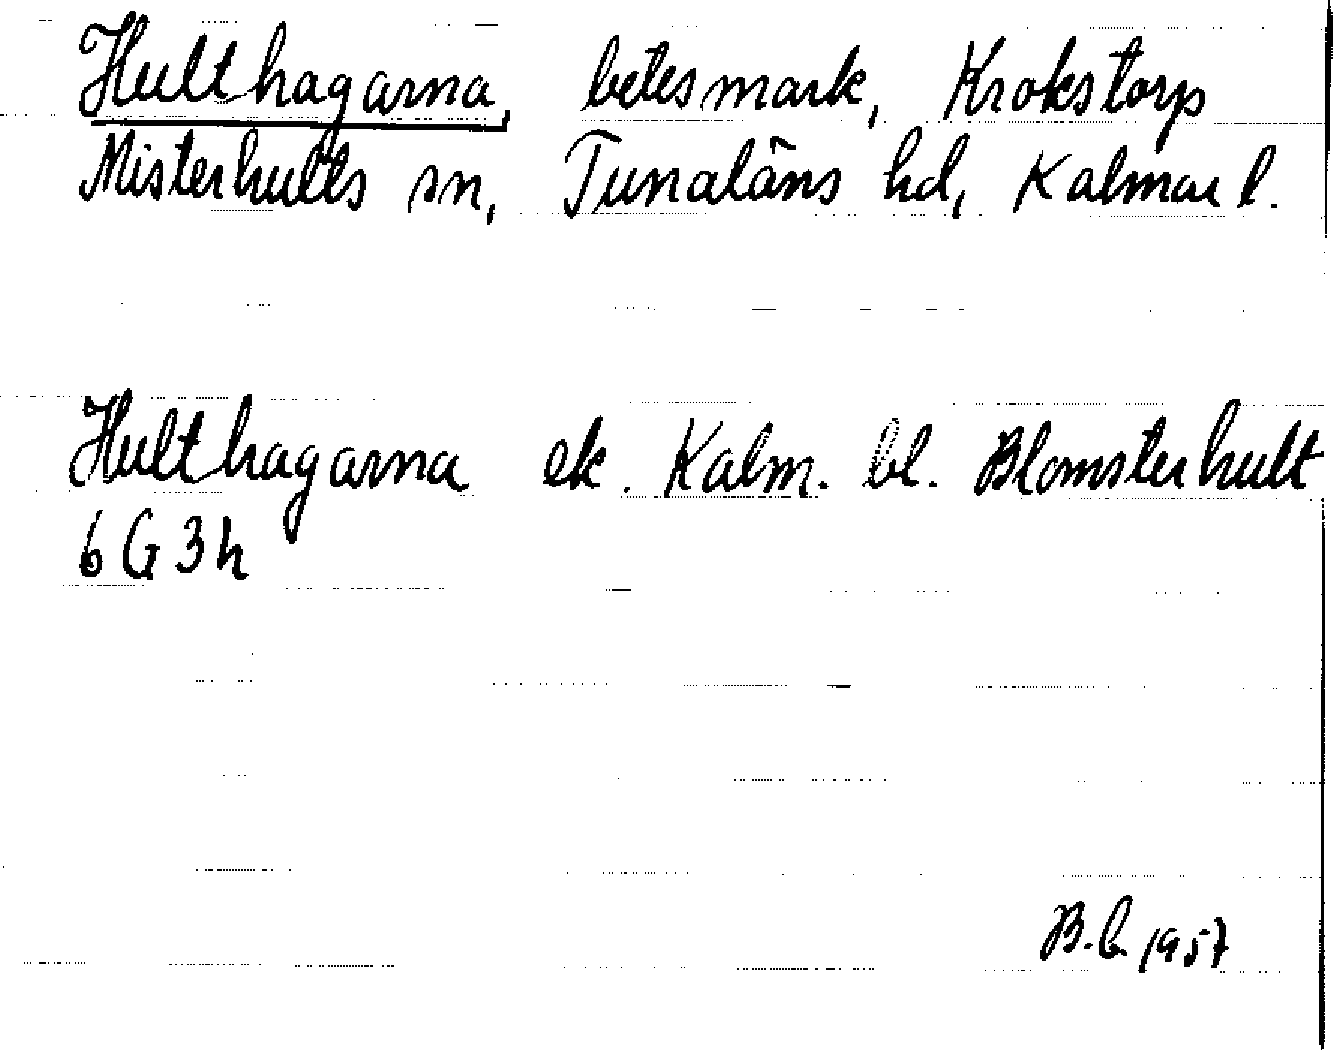 Hulthagarna, betesmark, Krokstorp
Misterhults sn, Tunaläns hd, Kalmar l.
Hulthagarna ek. Kalm. bl. Blomsterhult
6G3h
B.C. 1957